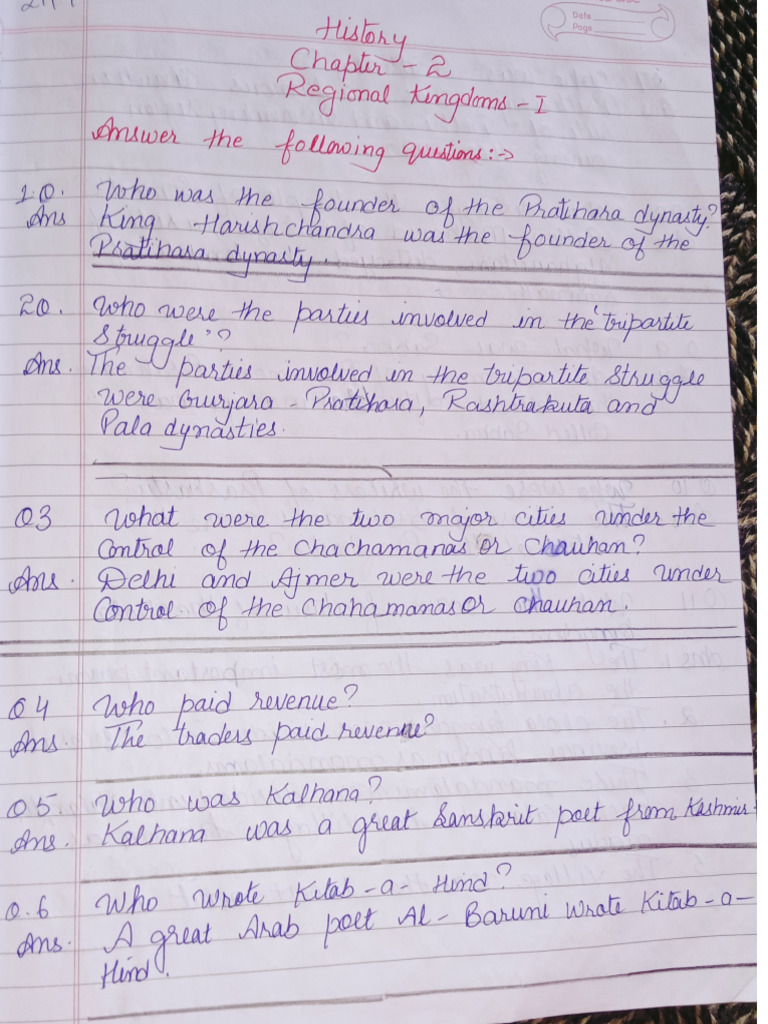 Date
Page
History
Chapter - 2
Regional Kingdoms - I
Answer the following questions:->
1Q. Who was the founder of the Pratihara dynasty?
Ans King Harishchandra was the founder of the
Pratihara dynasty.
2Q. Who were the parties involved in the 'tripartite
Struggle'?
Ans. The parties involved in the tripartite Struggle
were Gurjara - Pratihara, Rashtrakuta and
Pala dynasties.
Q3 What were the two major cities under the
Control of the Chachamanas or Chauhan?
Ans. Delhi and Ajmer were the two cities under
Control of the Chahamanas or Chauhan.
Q4 Who paid revenue?
Ans. The traders paid revenue?
Q5. Who was Kalhana?
Ans. Kalhana was a great Sanskrit poet from Kashmir.
Q.6 Who wrote Kitab-a-Hind?
Ans. A great Arab poet Al-Baruni wrote Kitab-a-
Hind.